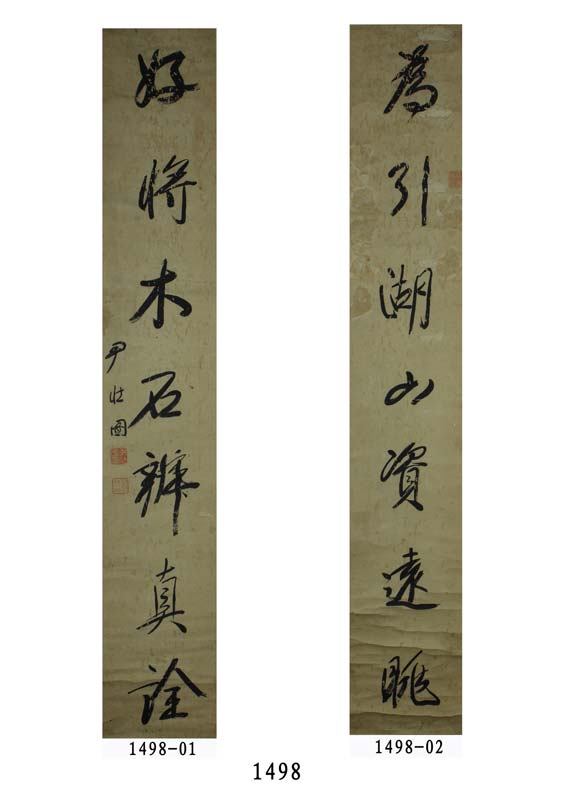 為引湖山資遠眺
好將木石辨真詮
尹壯圖
1498-01
1498-02
1498